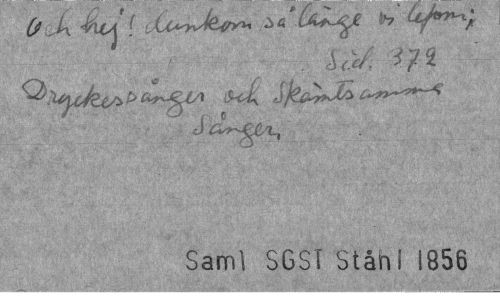 Och hej! dunkom så länge vi lefom;
Sid. 372
Dryckessånger och Skämtsamma
Sånger,
Saml SGST Ståhl 1856